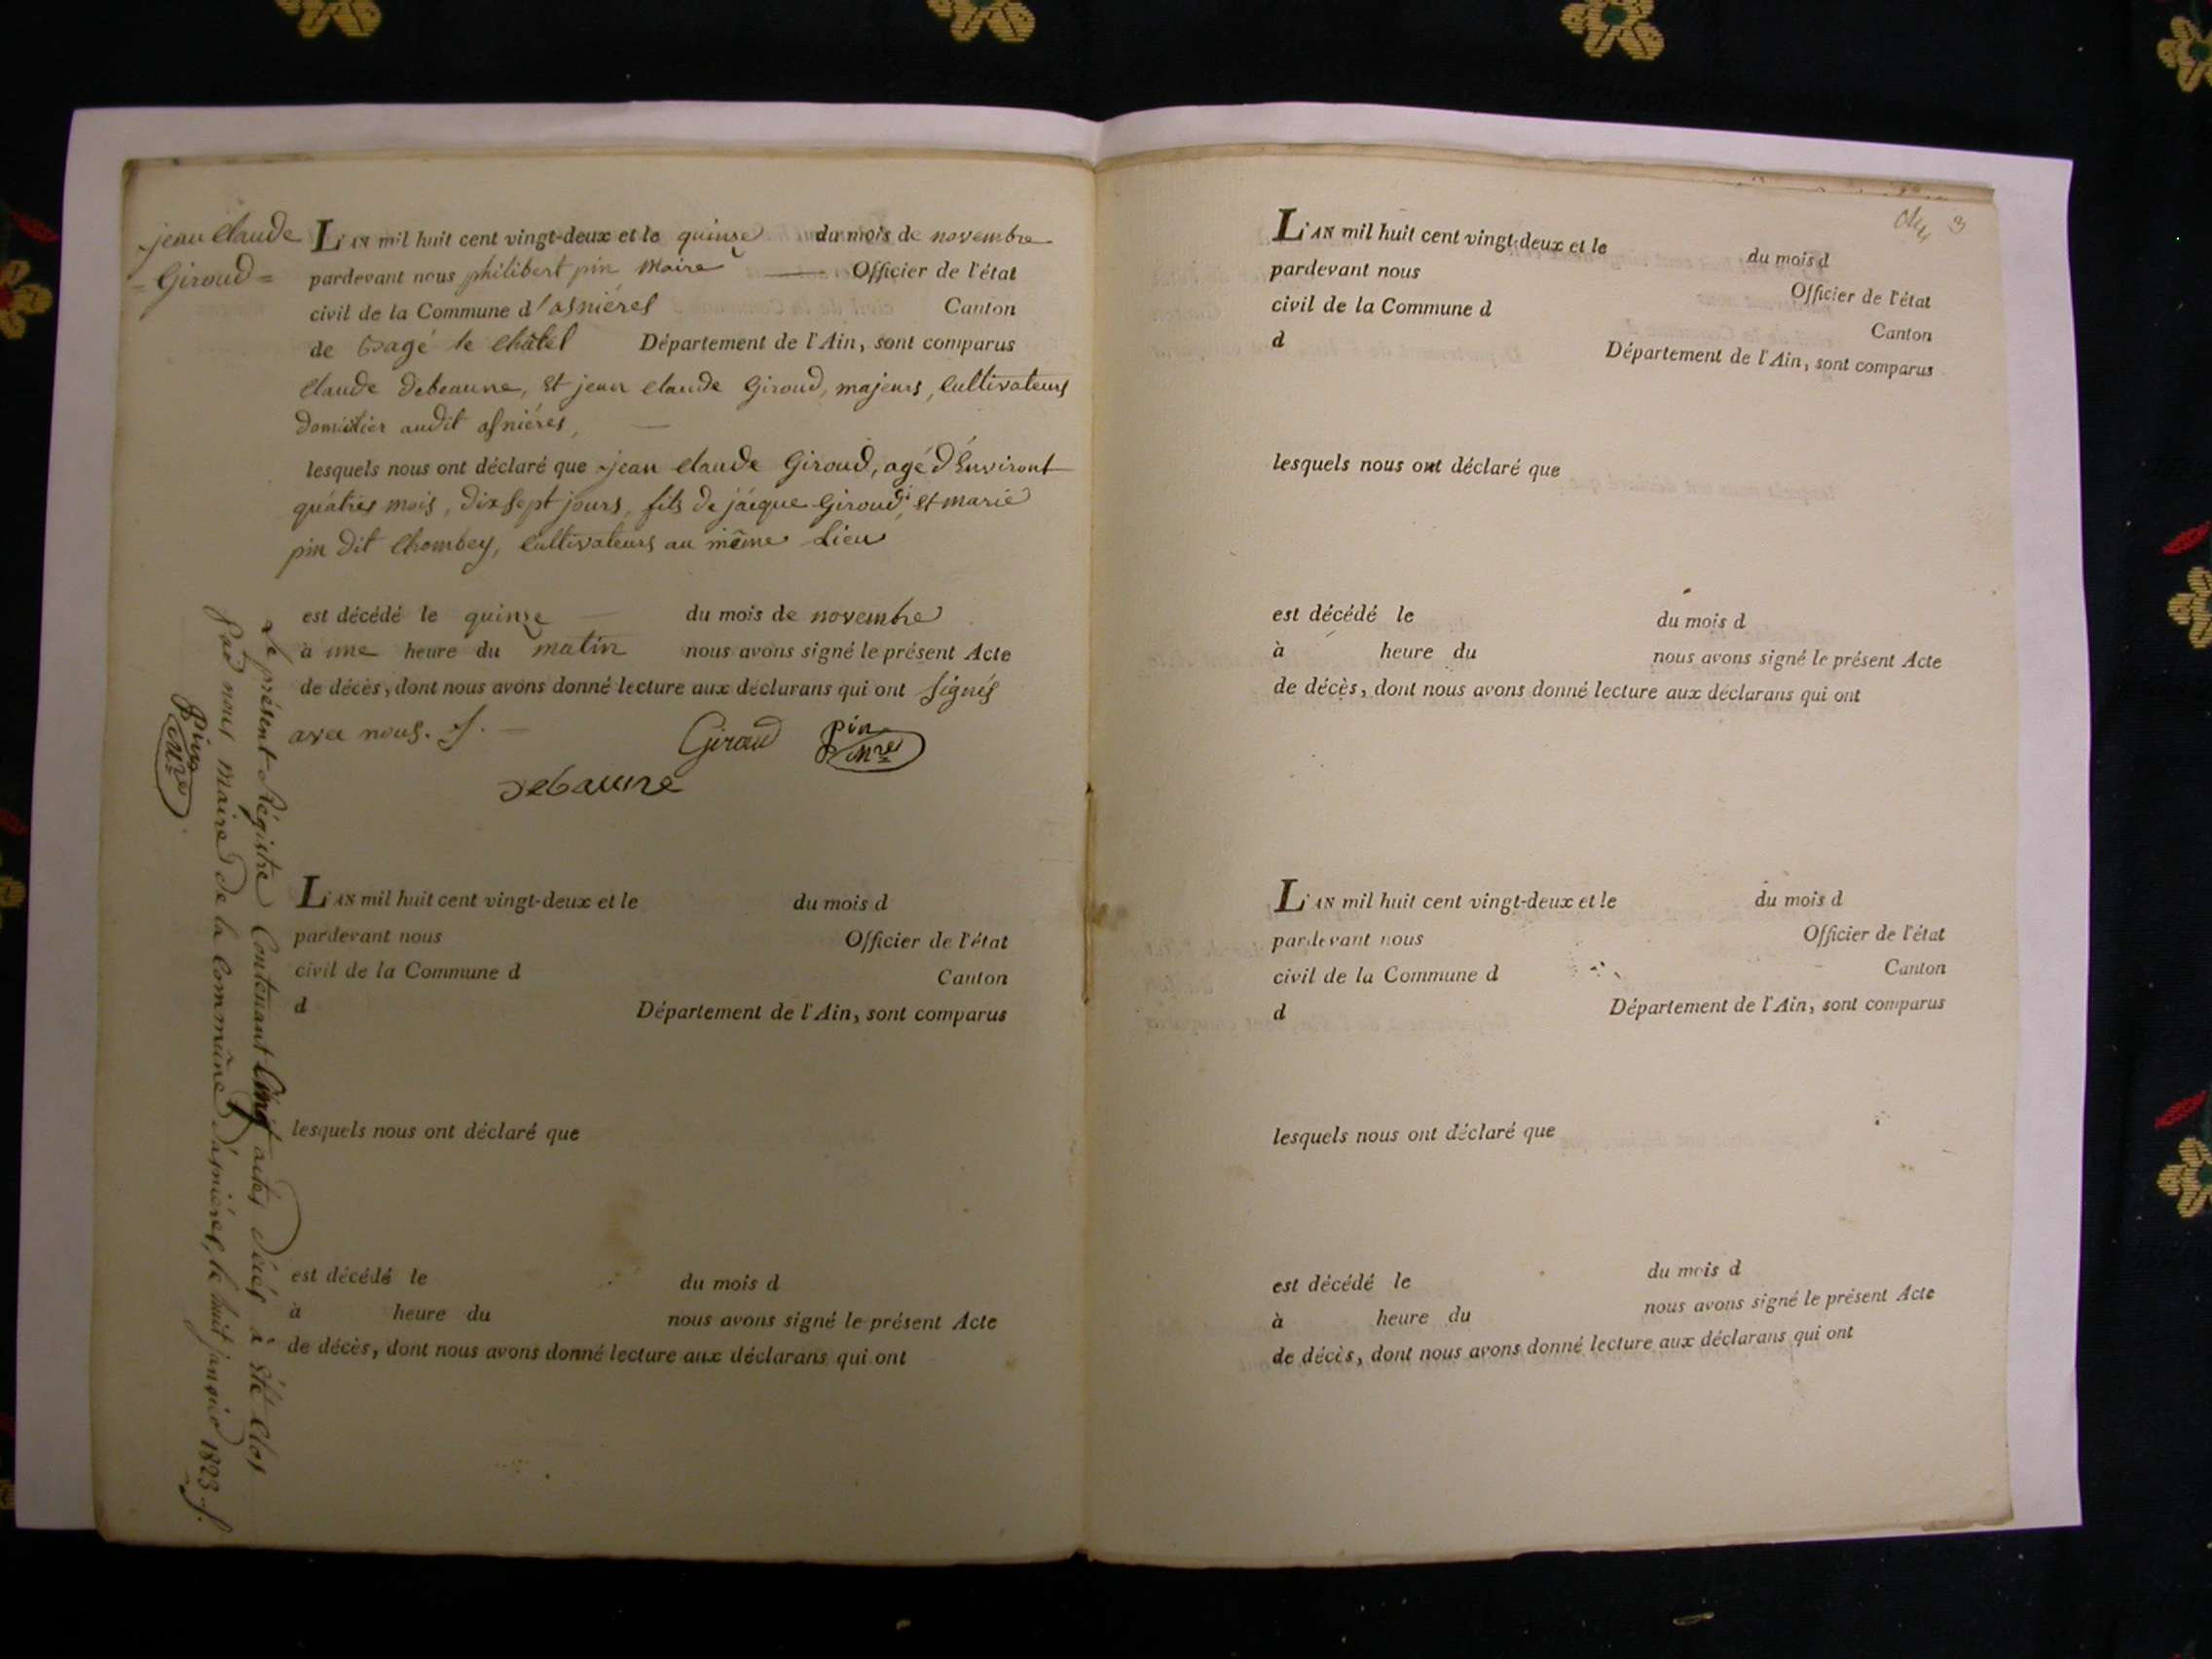 jean Claude
= Giroud =
L'AN mil huit cent vingt-deux et le quinze du mois de novembre
pardevant nous philibert pin Maire Officier de l'état
civil de la Commune d'asniéres Canton
de Bagé le Châtel Département de l'Ain, sont comparus
Claude debeaune, et jean Claude Giroud, majeurs, Cultivateurs
audit asniéres,
lesquels nous ont déclaré que jean Claude Giroud, agé d'Environt
quatres mois, dix sept jours, fils de jacque Giroud, et marie
pin dit Chombey, Cultivateurs au même Lieu
est décédé le quinze du mois de novembre
à une heure du matin nous avons signé le présent Acte
de décès, dont nous avons donné lecture aux déclarans qui ont signés
avec nous.
Giroud pin
Mre
debaune
Le présent Régistre Contenant Cinq actes décés à été Clos
Par nous Maire de la Commune d'asniéres, le huit janvier 1823
pin
Mre
L'AN mil huit cent vingt-deux et le du mois d
pardevant nous Officier de l'état
civil de la Commune d Canton
d Département de l'Ain, sont comparus
lesquels nous ont déclaré que
est décédé le du mois d
à heure du nous avons signé le présent Acte
de décès, dont nous avons donné lecture aux déclarans qui ont
3
L'AN mil huit cent vingt-deux et le du mois d
pardevant nous Officier de l'état
civil de la Commune d Canton
d Département de l'Ain, sont comparus
lesquels nous ont déclaré que
est décédé le du mois d
à heure du nous avons signé le présent Acte
de décès, dont nous avons donné lecture aux déclarans qui ont
L'AN mil huit cent vingt-deux et le du mois d
pardevant nous Officier de l'état
civil de la Commune d Canton
d Département de l'Ain, sont comparus
lesquels nous ont déclaré que
est décédé le du mois d
à heure du nous avons signé le présent Acte
de décès, dont nous avons donné lecture aux déclarans qui ont